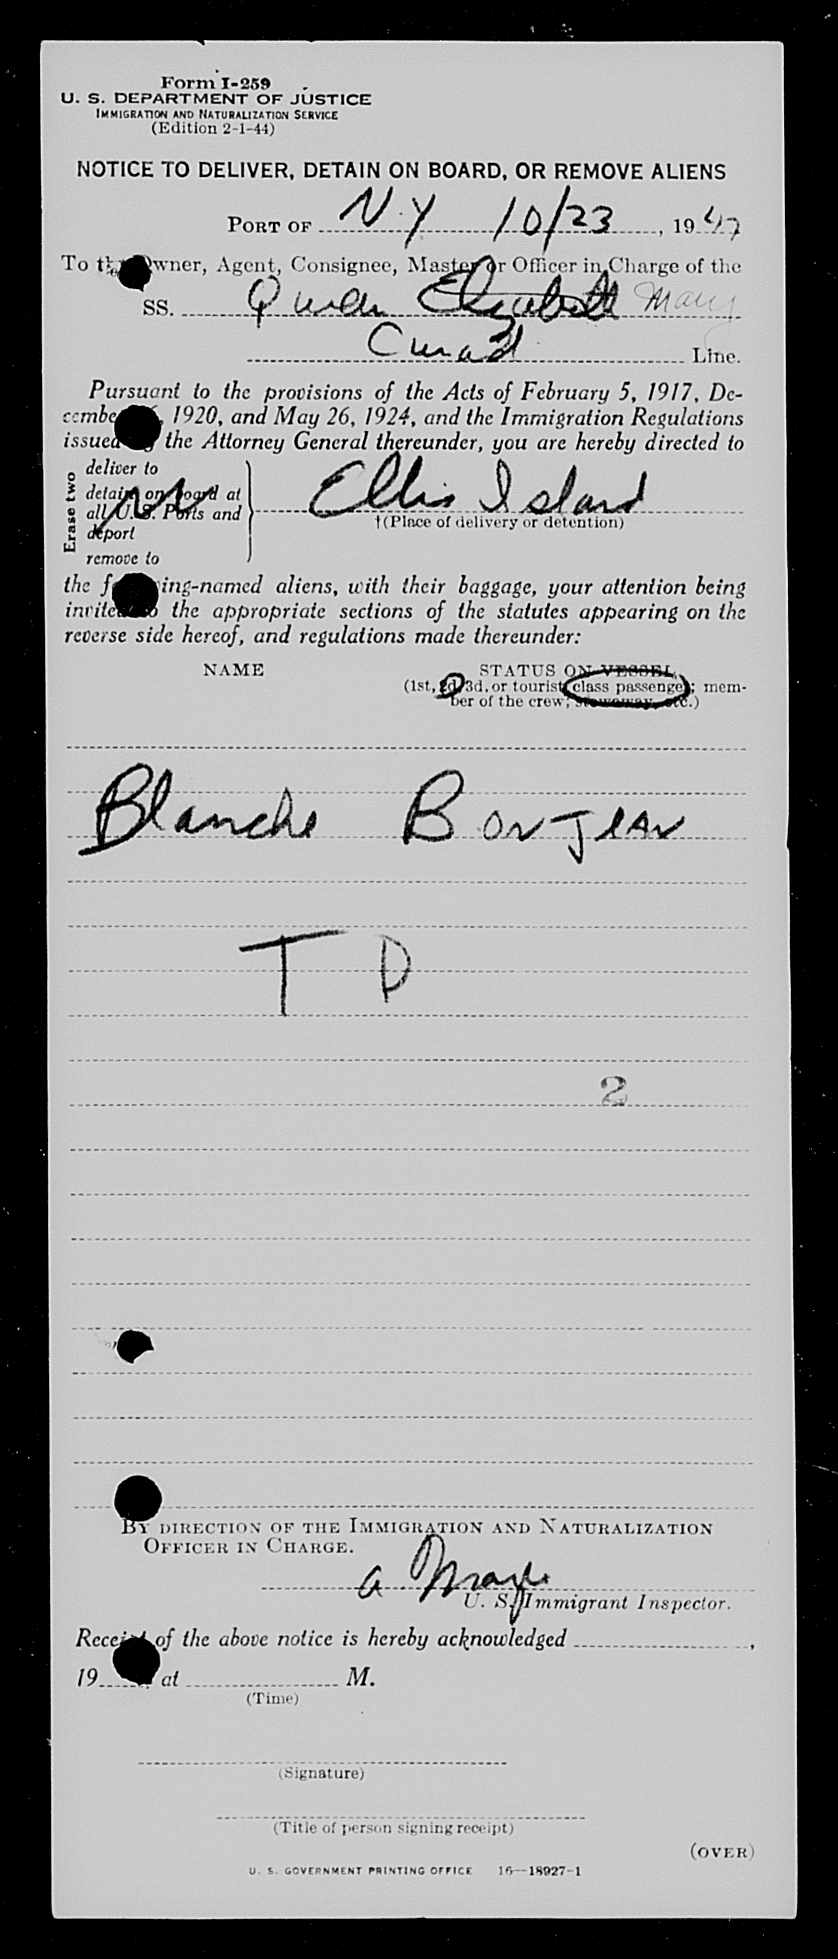 Form I-259
U. S. DEPARTMENT OF JUSTICE
IMMIGRATION AND NATURALIZATION SERVICE
(Edition 2-1-44)
NOTICE TO DELIVER, DETAIN ON BOARD, OR REMOVE ALIENS
PORT OF N.Y 10/23, 1947
To the Owner, Agent, Consignee, Master or Officer in Charge of the
SS. Queen Elizabeth Mary
Cunard Line.
Pursuant to the provisions of the Acts of February 5, 1917, De-
cember , 1920, and May 26, 1924, and the Immigration Regulations
issued by the Attorney General thereunder, you are hereby directed to
Erase two
deliver to
detain on board at
all U.S. Ports and
deport
remove to
Ellis Island
†(Place of delivery or detention)
the following-named aliens, with their baggage, your attention being
invited to the appropriate sections of the statutes appearing on the
reverse side hereof, and regulations made thereunder:
NAME STATUS ON VESSEL
(1st, 2d, 3d, or tourist class passenger; mem-
ber of the crew; stowaway, etc.)
Blanche Bonjean
T D
2
BY DIRECTION OF THE IMMIGRATION AND NATURALIZATION
OFFICER IN CHARGE.
a
U. S. Immigrant Inspector.
Receipt of the above notice is hereby acknowledged ,
19 at M.
(Time)
(Signature)
(Title of person signing receipt)
(OVER)
U. S. GOVERNMENT PRINTING OFFICE 16—18927-1